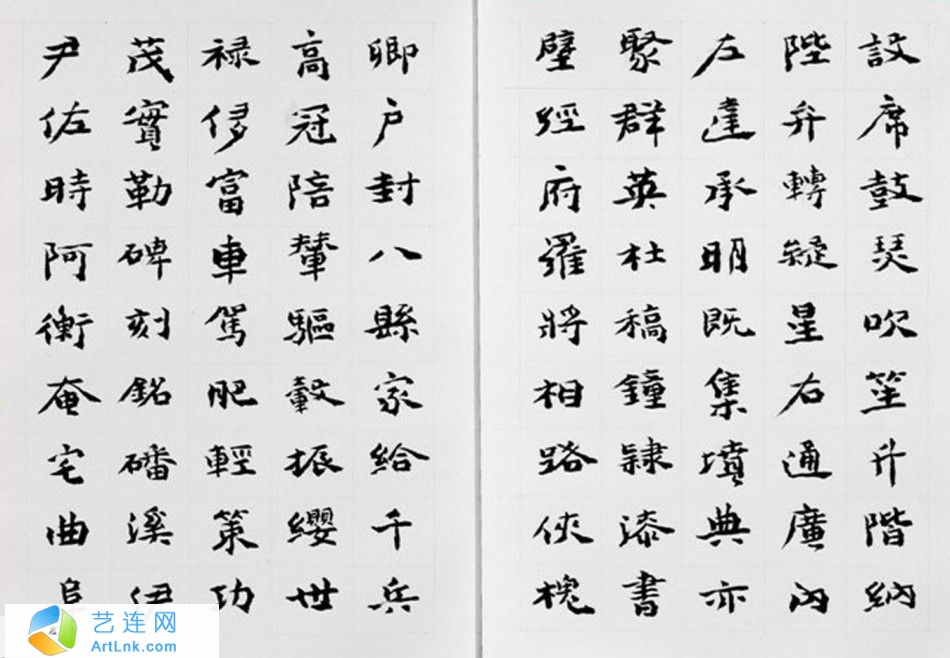 設席鼓瑟吹笙升階納
陛弁轉疑星右通廣內
左達承明既集墳典亦
聚群英杜稿鐘隸漆書
壁經府羅將相路俠槐
卿户封八縣家給千兵
高冠陪輦驅轂振纓世
禄侈富車駕肥輕策功
茂實勒碑刻銘磻溪伊
尹佐時阿衡奄宅曲阜
艺连网
ArtLnk.com